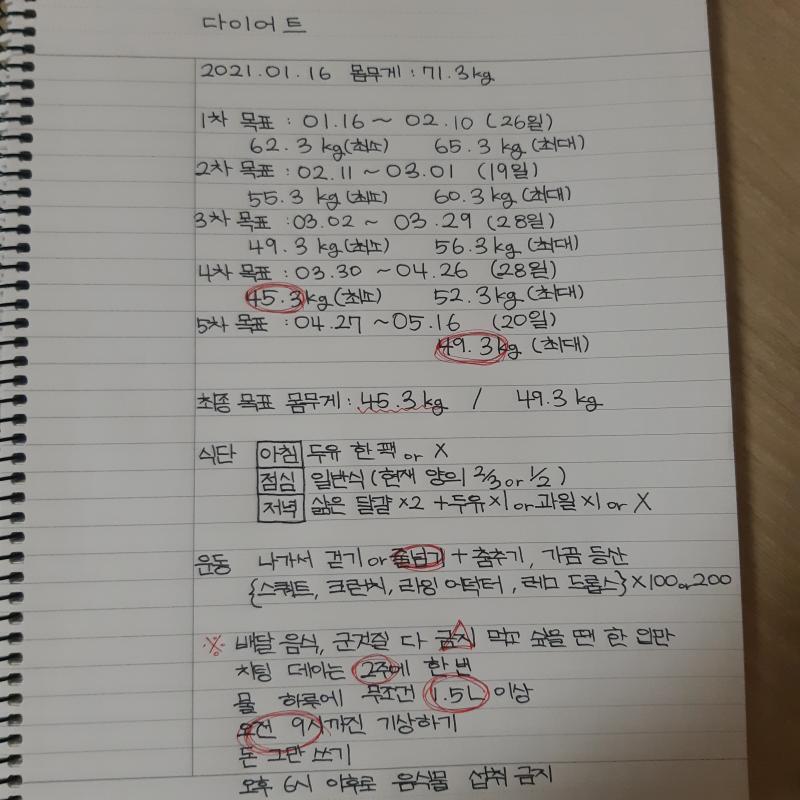 다이어트
2021.01.16 몸무게 : 71.3kg
1차 목표 : 01.16 ~ 02.10 (26일)
62.3 kg(최소) 65.3 kg (최대)
2차 목표 : 02.11 ~ 03.01 (19일)
55.3 kg (최소) 60.3 kg (최대)
3차 목표 : 03.02 ~ 03.29 (28일)
49.3 kg (최소) 56.3 kg (최대)
4차 목표 : 03.30 ~ 04.26 (28일)
45.3 kg (최소) 52.3 kg (최대)
5차 목표 : 04.27 ~ 05.16 (20일)
49.3 kg (최대)
최종 목표 몸무게 : 45.3 kg / 49.3 kg
식단 아침 두유 한 팩 or X
점심 일반식 (현재 양의 2/3 or 1/2)
저녁 삶은 달걀 x2 + 두유 x1 or 과일 x1 or X
운동 나가서 걷기 or 줄넘기 + 춤추기, 가끔 등산
{스쿼트, 크런치, 라잉 어덕터, 레그 드롭스} X 100 or 200
※ 배달 음식, 군것질 다 금지 먹고 싶을 땐 한 입만
치팅 데이는 2주에 한 번
물 하루에 무조건 1.5L 이상
오전 9시까진 기상하기
돈 그만 쓰기
오후 6시 이후로 음식물 섭취 금지